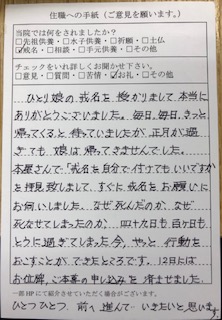 住職への手紙（ご意見を願います。）
当院では何をされましたか？
□先祖供養・□水子供養・□祈願・□土仏
☑戒名・□相談・□手元供養・□その他
チェックをいれ詳しくお聞かせ下さい。
□意見・□質問・□苦情・☑お礼・□その他
ひとり娘の戒名を授かりまして本当に
ありがとうございました。毎日、毎日、きっと
帰ってくると待っていましたが、正月が過
ぎても娘は帰ってきませんでした。
本屋さんで「戒名を自分で付けてもいいですか」
を拝見致しまして、すぐに戒名をお願いに
お伺いしました。なぜ死んだのか、なぜ
死なせてしまったのか、四十九日も百ヶ日も
とうに過ぎてしまった今、やっと行動を
おこすことができたところです。12日には
お位牌、ご本尊の申し込みを済ませました。
一部HPにて紹介させていただく場合がございます。
ひとつひとつ、前へ進んでいきたいと思います。